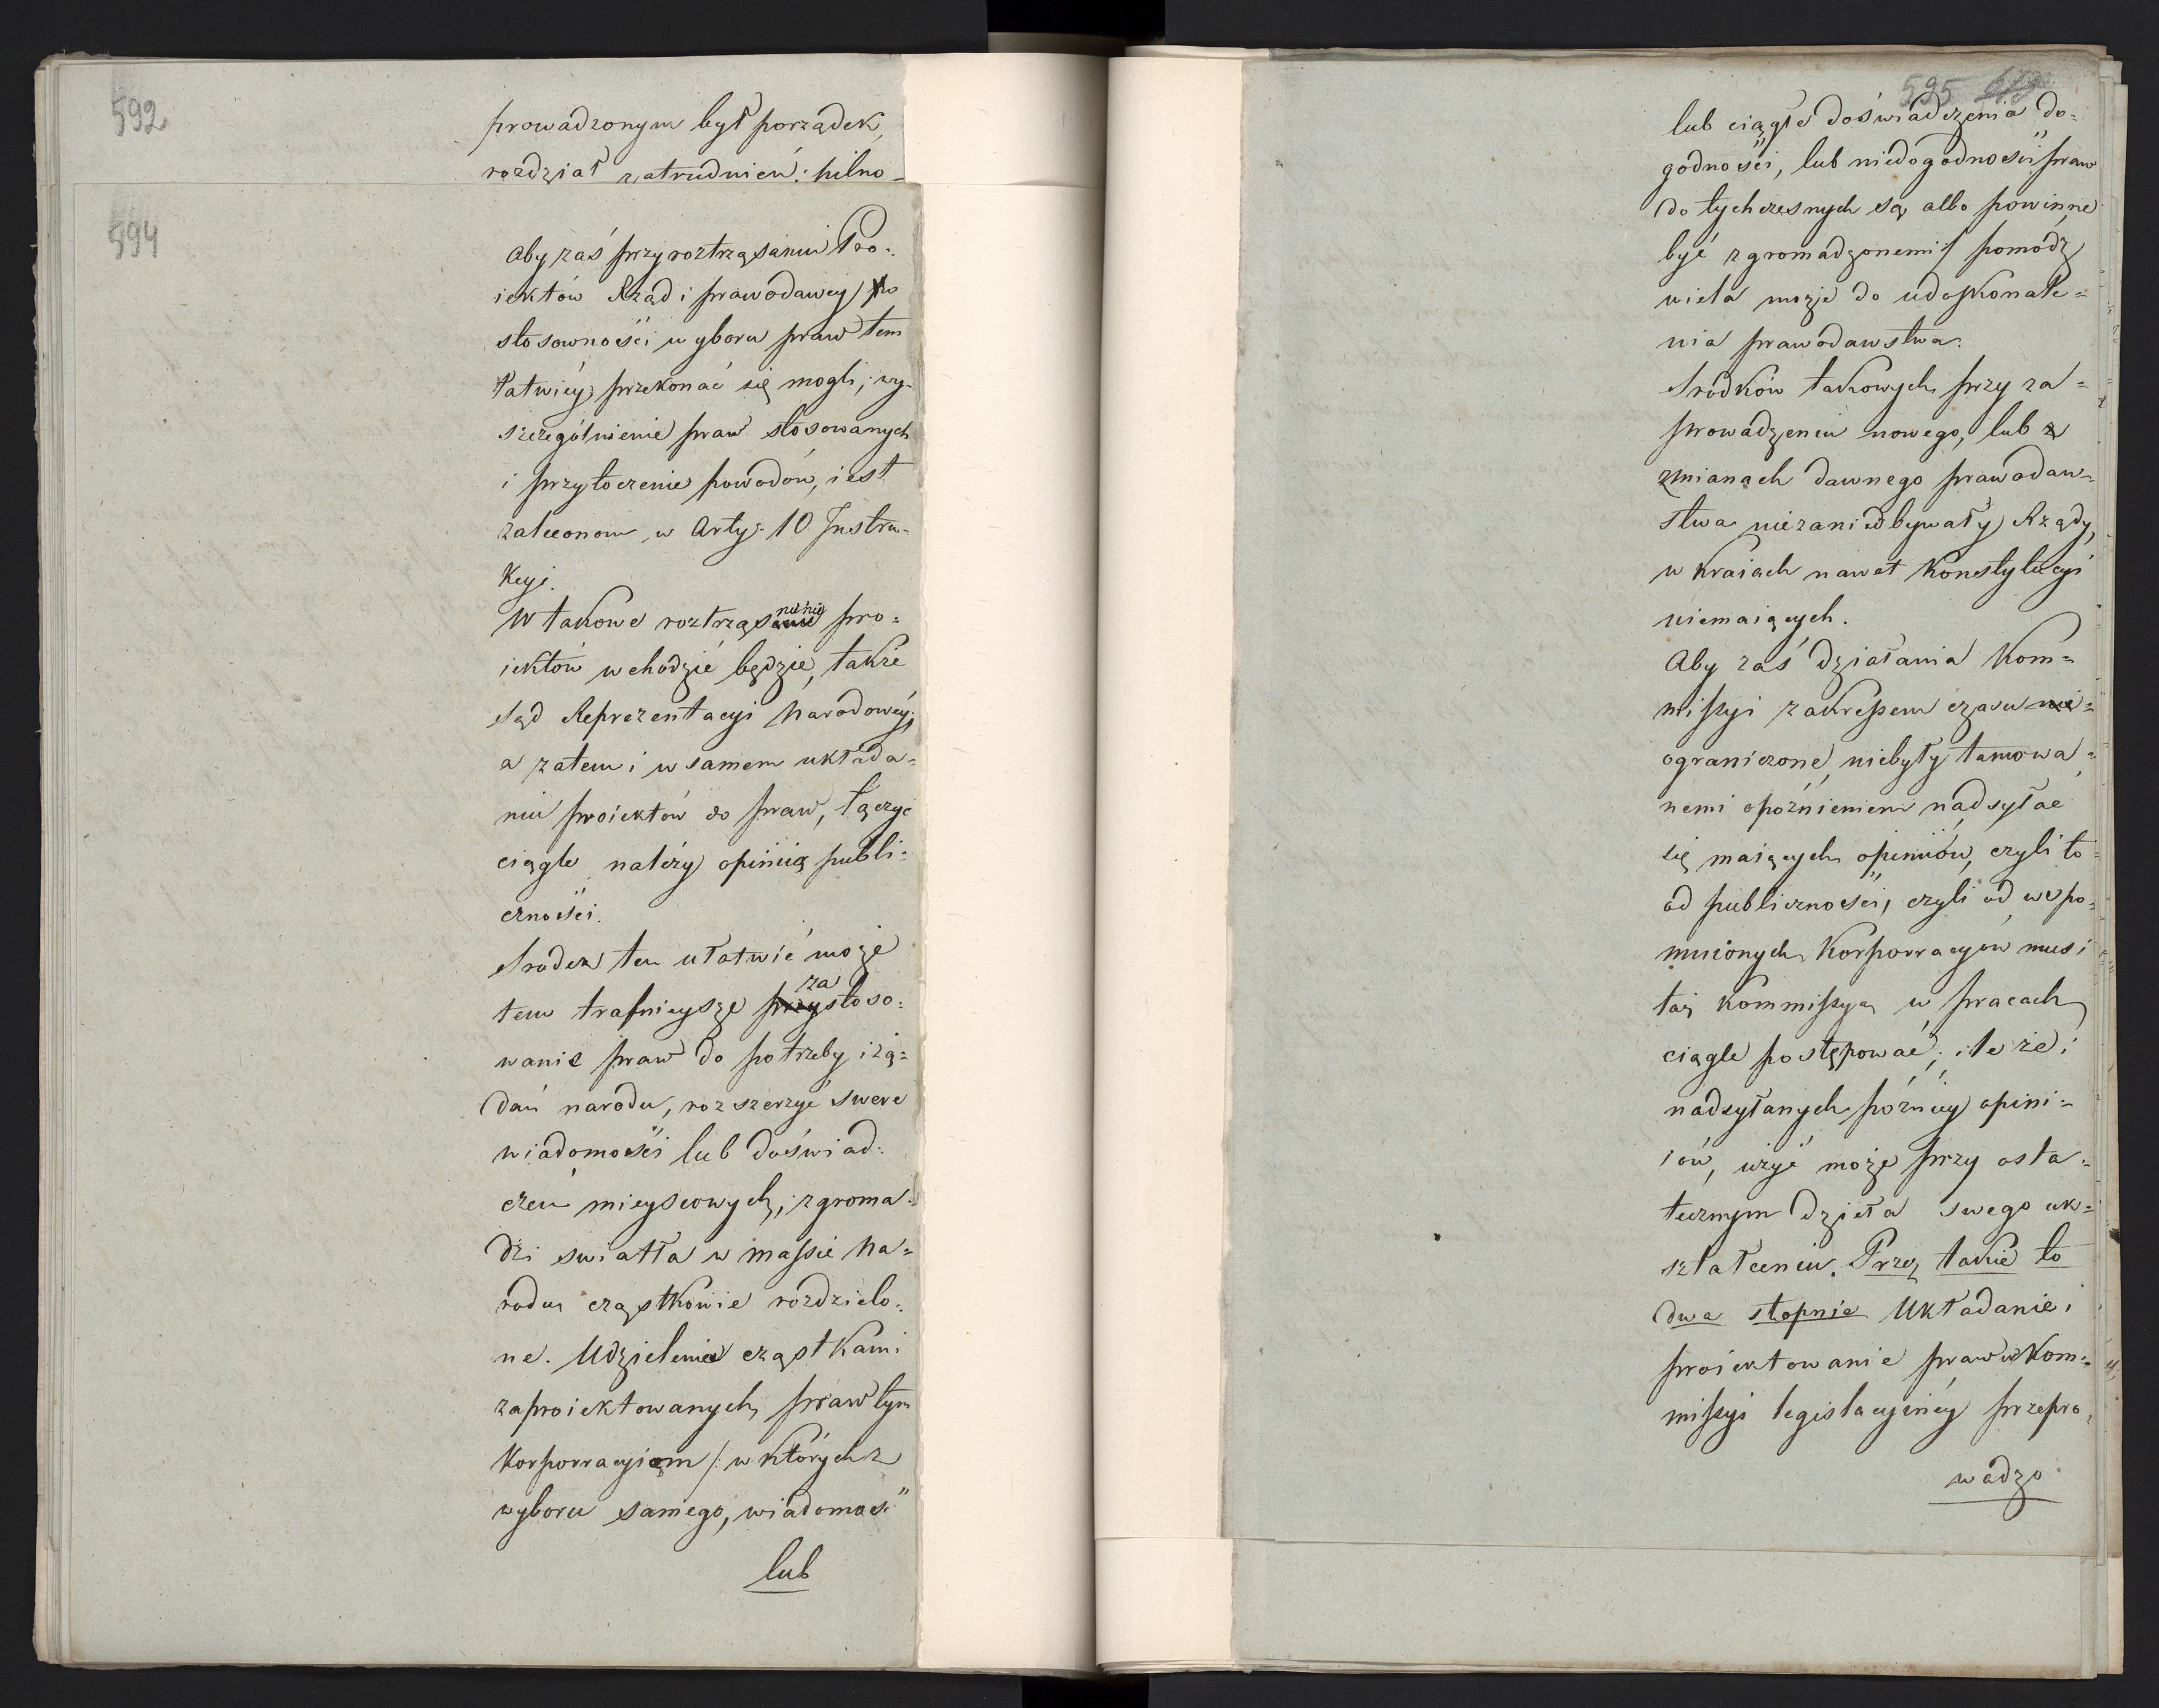 592
prowadzonym był porządek,
rozdział zatrudnień: pilno-
594
Aby zaś przy roztrząsaniu Pro-
iektów Rząd i prawodawcy, po
stosowności wyboru praw tem
łatwiéy przekonać się mogli; wy-
szczególnienie praw stosowanych
i przytoczenie powodów, iest
zalecone w Arty: 10 Instru-
kcyi.
W takowe roztrząsanie pro=
iektów wchodzić będzie, także
sąd Reprezentacyi Narodowéy;
a zatem i w samem układa=
niu proiektów do praw, łączyć
ciągle należy opiniią publi=
czności.
Srodek ten ułatwić może
za
tem trafnieysze przystoso=
wanie praw do potrzeby i żą=
dań narodu, rozszerzyć swere
wiadomości lub doświad=
czeń mieyscowych, zgroma=
dzi swiatła w massie Na=
rodu cząstkowie rozdzielo=
ne. Udzielenie cząstkami
zaproiektowanych praw tym
Korporracyiom /: w których z
wyboru samego, wiadomośc
lub
595
lub ciągłe doświadczenia do=
godności, lub niedogodności praw
dotychczesnych są albo powinne
być zgromadzonemi/ pomódz
wiela może do udoskonale=
nia prawodawstwa.
Srodków takowych przy za=
prowadzeniu nowego, lub z
zmianach dawnego prawodaw=
stwa niezaniedbywały Rządy,
w kraiach nawet Konstytucyi
niemaiących.
Aby zaś działania Kom=
missyi zakresem czasu nie=
ograniczone, niebyły tamowa=
nemi opóźnieniem nadsyłac
się maiących opiniiów, czyli to
od publiczności, czyli od wspo=
mnionych Korporracyów musi
taż Kommissya w pracach
ciągle postępować; ile że i
nadsyłanych późniéy opini=
iów, użyć może przy osta=
tecznym dzieła swego uk=
ształceniu. Przez takie to
dwa stopnie Układanie i
proiektowanie praw w Kom=
missyi legislacyinéy przepro=
wadzo